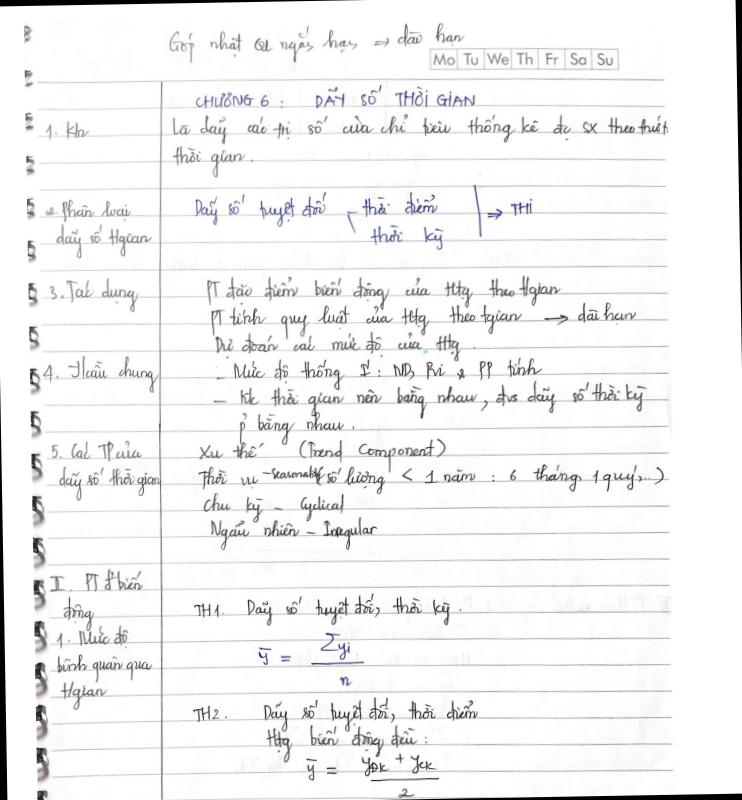 Góp nhặt QL ngắn hạn ⇒ dài hạn
Mo Tu We Th Fr Sa Su
CHƯƠNG 6 : DÃY SỐ THỜI GIAN
1. Kn
Là dãy các trị số của chỉ tiêu thống kê đc sx theo thứ t
thời gian.
2. Phân loại
dãy số tgian
Dãy số tuyệt đối
thời điểm
thời kỳ
⇒ TH
3. Tác dụng
PT đặc điểm biến động của Htg theo tgian
PT tính quy luật của Htg theo tgian → dài hạn
Dự đoán các mức độ của Htg.
4. Ycầu chung
- Mức độ thống I : ND, Pvi & PP tính
- Kc thời gian nên bằng nhau, đvs dãy số thời kỳ
p bằng nhau.
5. Các TP của
dãy số thời gian
Xu thế (Trend Component)
Thời vụ - Seasonality (số lượng < 1 năm : 6 tháng, 1 quý,...)
Chu kỳ - Cyclical
Ngẫu nhiên - Irregular
I. PT đ² biến
động
1. Mức độ
bình quân qua
tgian
TH1. Dãy số tuyệt đối, thời kỳ.
ȳ = Σyi / n
TH2. Dãy số tuyệt đối, thời điểm
Htg biến động đều :
ȳ = yĐK + yCK / 2